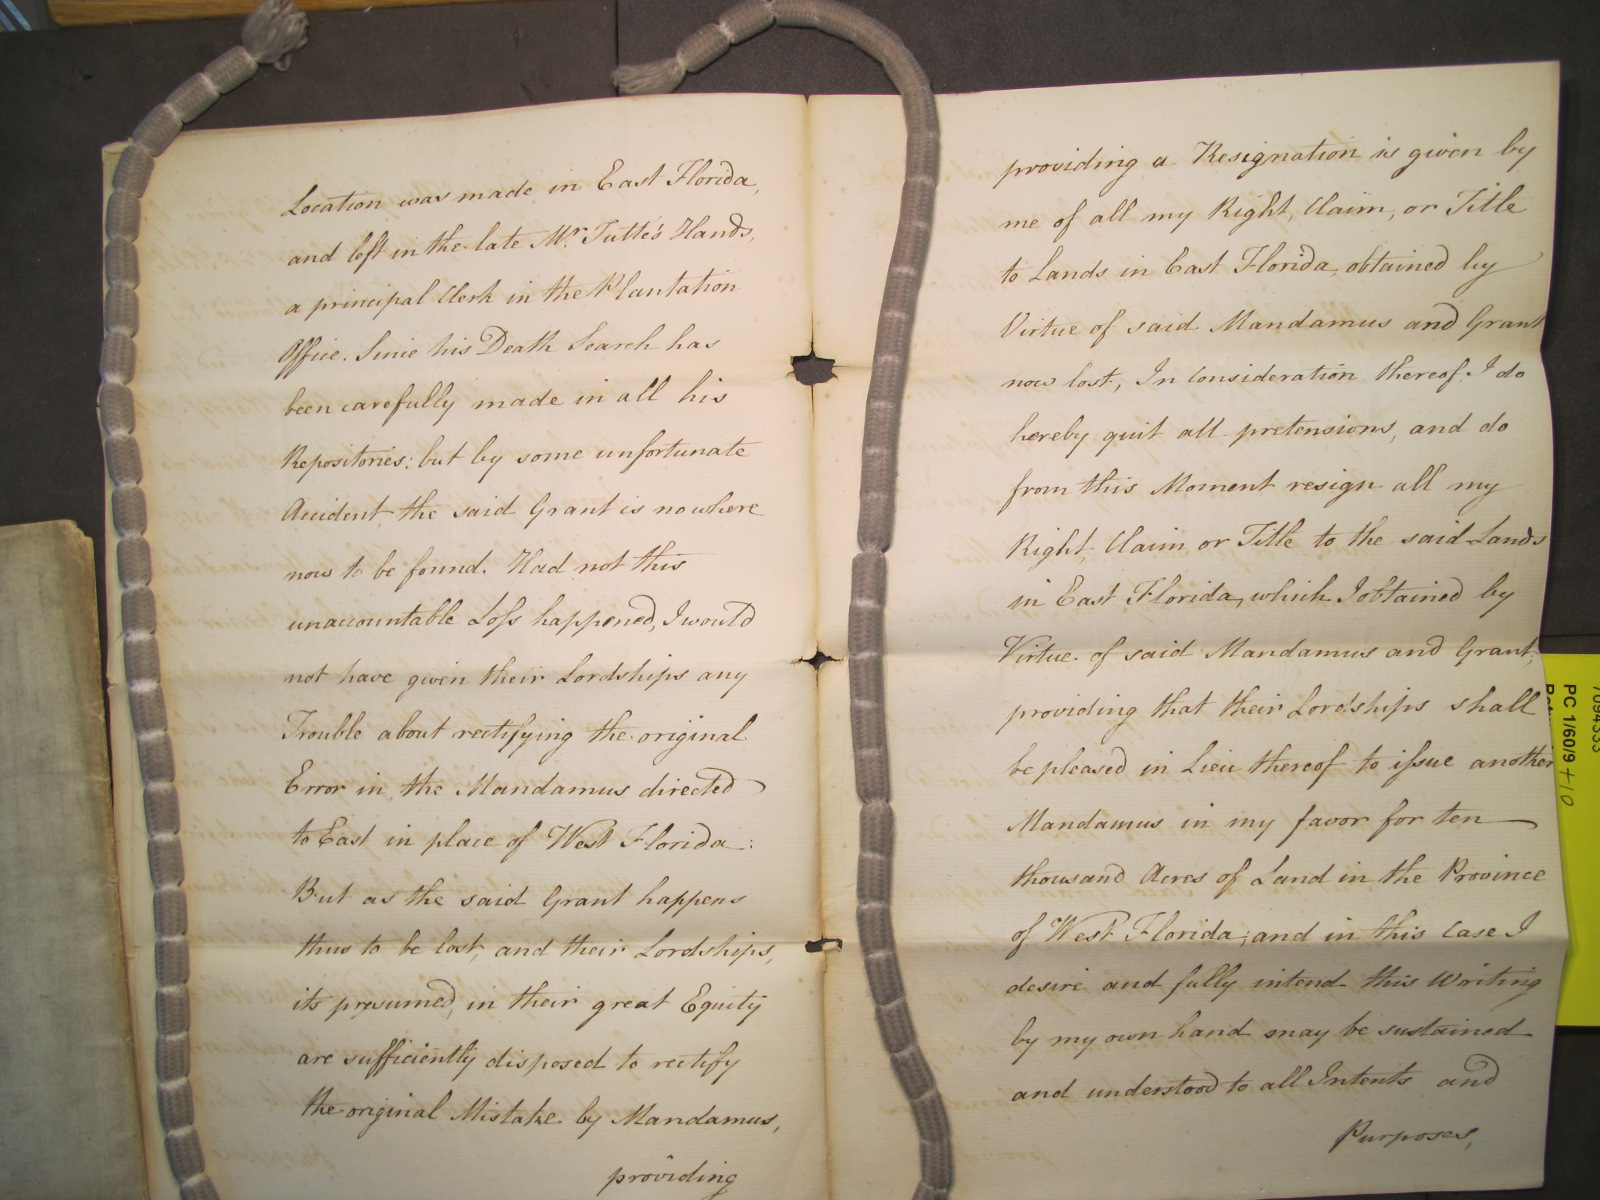 Location was made in East Florida,
and left in the late Mr. Tutte's Hands,
a principal Clerk in the Plantation
Office. Since his Death Search has
been carefully made in all his
Repositories: but by some unfortunate
Accident the said Grant is nowhere
now to be found. Had not this
unaccountable Loss happened, I would
not have given their Lordships any
Trouble about rectifying the original
Error in the Mandamus directed
to East in place of West Florida:
But as the said Grant happens
thus to be lost, and their Lordships,
its presumed, in their great Equity
are sufficiently disposed to rectify
the original Mistake by Mandamus,
providing
providing a Resignation is given by
me of all my Right, Claim, or Title
to Lands in East Florida, obtained by
Virtue of said Mandamus and Grant
now lost; In Consideration thereof I do
hereby quit all pretensions, and do
from this Moment resign all my
Right, Claim, or Title to the said Lands
in East Florida, which I obtained by
Virtue of said Mandamus and Grant,
providing that their Lordships shall
be pleased in Lieu thereof to issue another
Mandamus in my favor for ten
thousand Acres of Land in the Province
of West Florida; and in this Case I
desire and fully intend this Writing
by my own hand may be sustained
and understood to all Intents and
Purposes,
PC 1/60/9 + 10